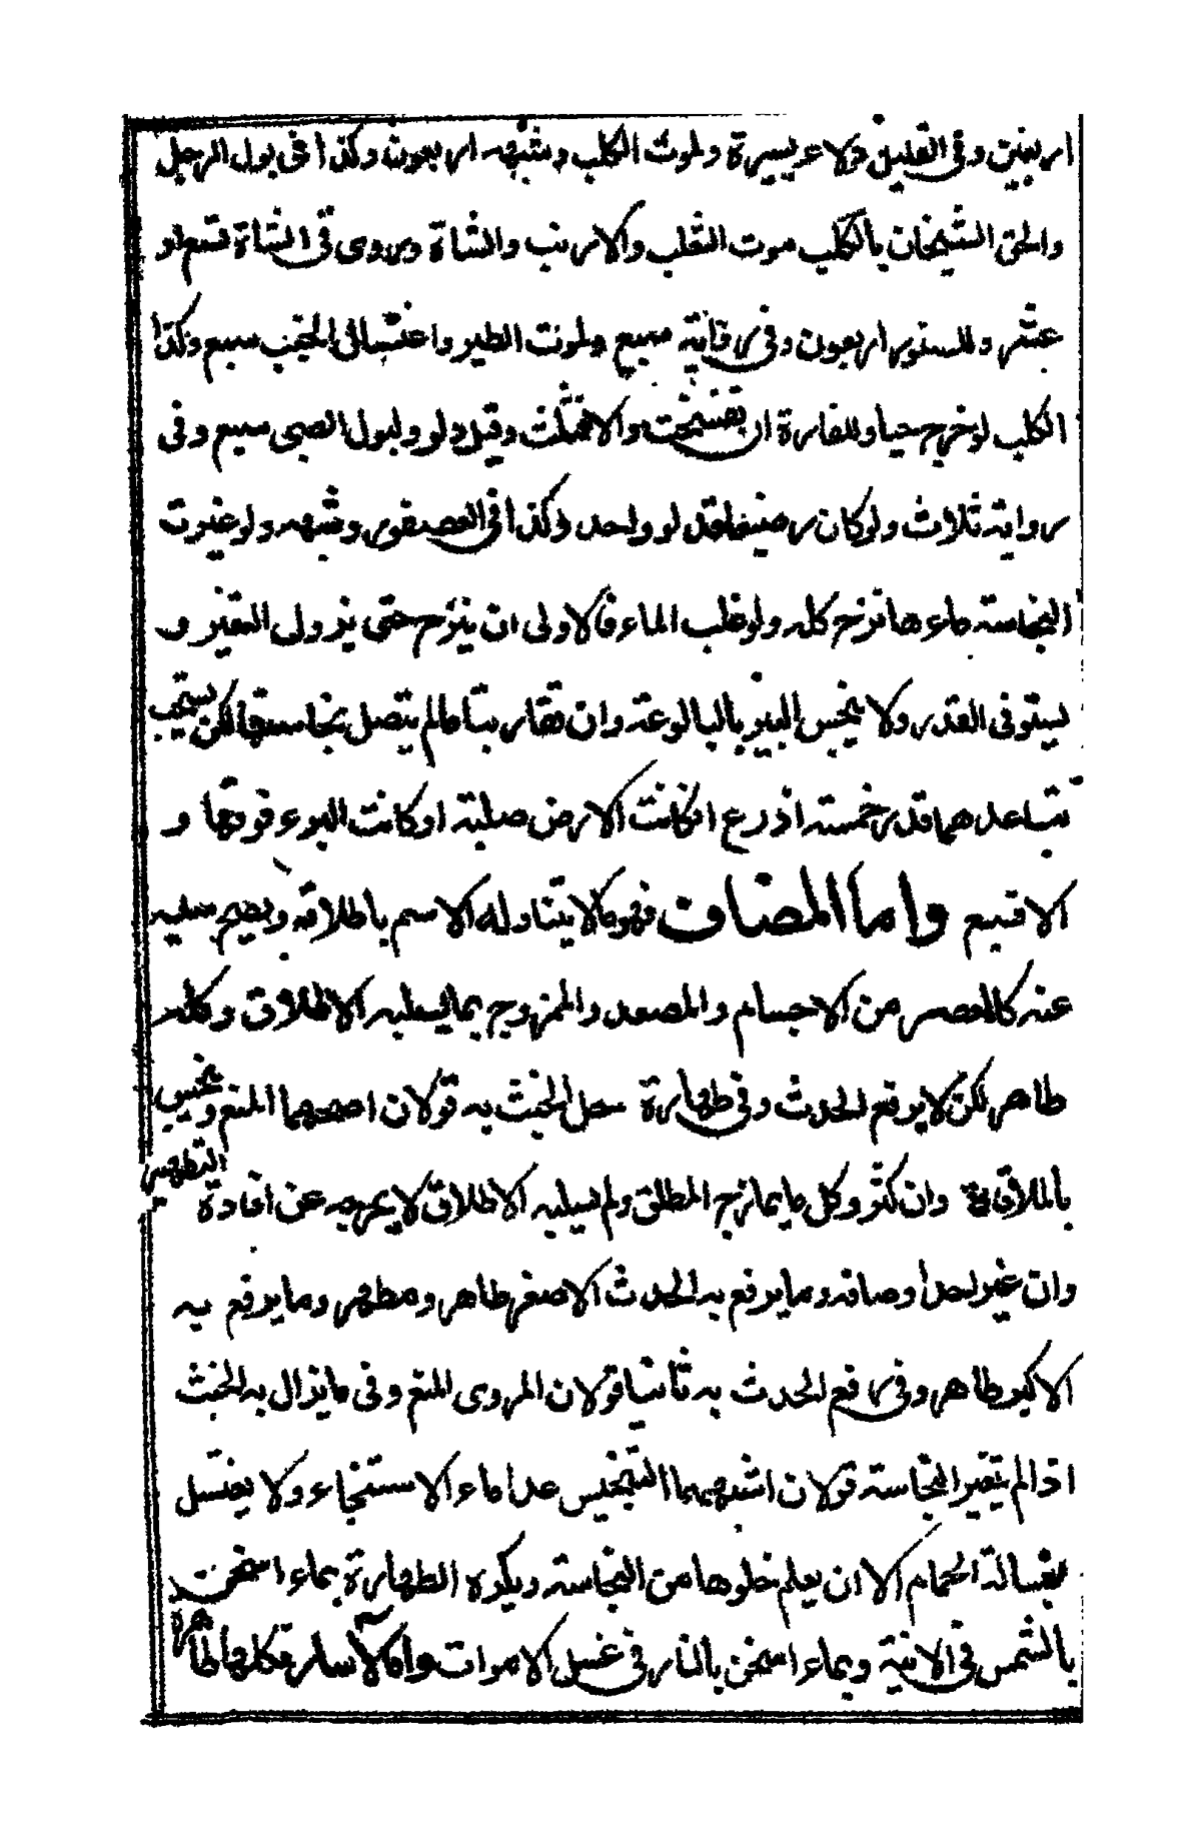 اربعين وفي القليل دلاء يسيرة ولموت الكلب وشبهه اربعون وكذا في بول الرجل
والحق الشيخان بالكلب موت الثعلب والارنب والشاة وروى في الشاة تسع او
عشر وللسنور اربعون وفي رواية سبع ولموت الطير واغتسال الجنب سبع وكذا
الكلب لو خرج حيا وللفارة ان تفسخت والا فثلث وقيل دلو ولبول الصبي سبع وفي
رواية ثلاث ولو كان رضيعا فدلو واحد وكذا في العصفور وشبهه ولو غيرت
النجاسة ماءها نزح كله ولو غلب الماء فالاولى ان ينزح حتى يزول التغير و
يستوفى القدر ولا ينجس البير بالبالوعة وان تقاربتا مالم يتصل نجاستها لكن يستحب
تباعدهما قدر خمسة اذرع ان كانت الارض صلبة او كانت البير فوقها و
الا فسبع واما المضاف فهو مالا يتناوله الاسم باطلاقه ويصح سلبه
عنه كالمعتصر من الاجسام والمصعد والممزوج بما يسلبه الاطلاق وكله
طاهر لكن لا يرفع الحدث وفي طهارة محل الخبث به قولان اصحهما المنع وينجس
بالملاقاة وان كثر وكل ما يمازج المطلق ولم يسلبه الاطلاق لا يخرجه عن افادة التطهير
وان غير احد اوصافه وما يرفع به الحدث الاصغر طاهر ومطهر وما يرفع به
الاكبر طاهر وفي رفع الحدث به ثانيا قولان المروي المنع وفي ما يزال به الخبث
اذا لم يتغير النجاسة قولان اشبههما التنجيس عدا ماء الاستنجاء ولا يغتسل
بغسالة الحمام الا ان يعلم خلوها من النجاسة ويكره الطهارة بماء اسخن
بالشمس في الانية وبماء اسخن بالنار في غسل الاموات واما الآسار فكلها طاهرة